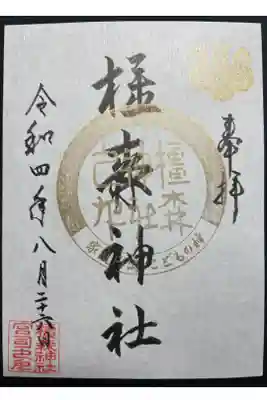 奉拝
橿森神社
橿森
令和四年八月二十六日
橿森神社